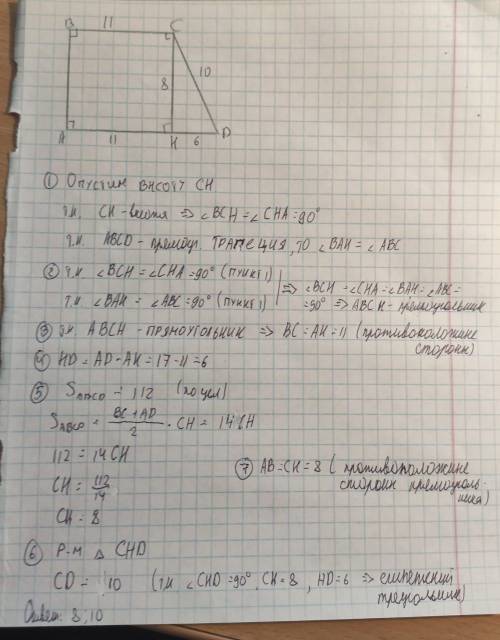 B 11 C
8 10
A 11 H 6 D
① Опустим высоту CH
т.к. CH - высота => ∠BCH = ∠CHA = 90°
т.к. ABCD - прямоуг. трапеция, то ∠BAH = ∠ABC
② т.к. ∠BCH = ∠CHA = 90° (пункт 1) => ∠BCH = ∠CHA = ∠BAH = ∠ABC =
т.к. ∠BAH = ∠ABC = 90° (пункт 1) = 90° => ABCH - прямоугольник
③ т.к. ABCH - прямоугольник => BC = AH = 11 (противоположные
стороны)
④ HD = AD - AH = 17 - 11 = 6
⑤ S_ABCD = 112 (по усл)
S_ABCD = (BC + AD)/2 · CH = 14CH
112 = 14CH
CH = 112/14
CH = 8
⑦ AB = CH = 8 (противоположные
стороны прямоуголь-
ника)
⑥ Р-м △ CHD
CD = 10 (т.к ∠CHD = 90°, CH = 8, HD = 6 => египетский
треугольник)
Ответ: 8; 10